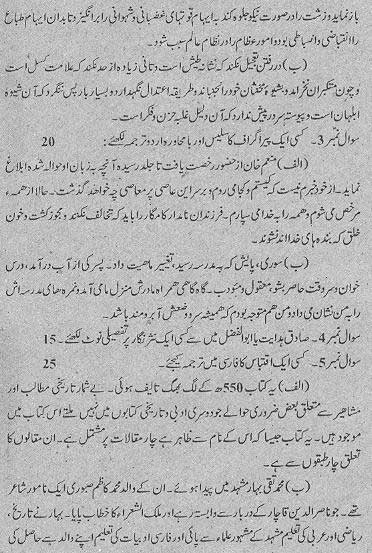 باز نماید و زشت را در صورت نیکو جلوہ کند بہ ایہام قوتہای غضبانی و شہوانی را برانگیزد تا بدان ایہام طباع
را انقباضی و انبساطی بود و امور عظام را در نظام عالم سبب شود۔
(ب) در رفتن تعجیل نکند کہ نشانہ طیش است و تانی زیادہ از حد نکند کہ علامت کسل است
و چون متکبران نخرامد و بشیوہ مخنثان خود را نجنباند و طریقہ اعتدال نگہدارد و بسیار باز پس ننگرد کہ آن شیوہ
ابلہان است و پیوستہ سر در پیش ندارد کہ آن دلیل غلبہ حزن و فکر است۔
سوال نمبر 3۔ کسی ایک پیراگراف کا سلیس اور بامحاورہ اردو ترجمہ لکھئے : 20
(الف) منعم خان از حضور رخصت یافت تا جلد رسیدہ آنچہ بہ زبان او حوالہ شد ابلاغ
نماید۔ از خود خبرم نیست کہ کیستم و کجا می روم و بر سر این عاصی پر معاصی چہ خواہد گذشت۔ حالا از ہمہ
مرخص می شوم و ہمہ را بہ خدا می سپارم۔ فرزندان نامدار کامگار را باید کہ تخالف نکنند و مجوز کشت و خون
خلق کہ بندہ ہای خدا اند نشوند۔
(ب) سوری، پایش کہ بہ مدرسہ رسید، تغییر ماہیت داد۔ پسر کی از آب درآمد، درس
خوان و سر وقت حاضر بشو و معقول و مؤدب۔ گاہ گاہی ہمراہ مادرش منزل ما می آمد و نمرہ ہای مدرسہ اش
را بہ من نشان می داد و من ہم متوجہ بودم کہ ہمیشہ سر و وضعش آبرومند باشد۔
سوال نمبر 4۔ صادق ہدایت یا ابوالفضل میں سے کسی ایک نثر نگار پر تفصیلی نوٹ لکھئے۔ 15
سوال نمبر 5۔ کسی ایک اقتباس کا فارسی میں ترجمہ کیجئے۔ 25
(الف) یہ کتاب 550ھ کے لگ بھگ تالیف ہوئی۔ بے شمار تاریخی مطالب اور
مشاہیر سے متعلق بعض ضروری حوالے جو دوسری ادبی و تاریخی کتابوں میں نہیں ملتے اس کتاب میں
موجود ہیں۔ یہ کتاب جیسا کہ اس کے نام سے ظاہر ہے چار مقالات پر مشتمل ہے۔ ان مقالوں کا
تعلق چار طبقوں سے ہے۔
(ب) محمد تقی بہار مشہد میں پیدا ہوئے۔ ان کے والد محمد کاظم صبوری ایک نامور شاعر
تھے۔ جو ناصر الدین قاچار کے دربار سے وابستہ رہے اور ملک الشعراء کا خطاب پایا۔ بہار نے تاریخ،
ریاضی اور عربی کی تعلیم مشہد کے مشہور علماء سے پائی اور فارسی ادبیات کی تعلیم اپنے والد سے حاصل کی